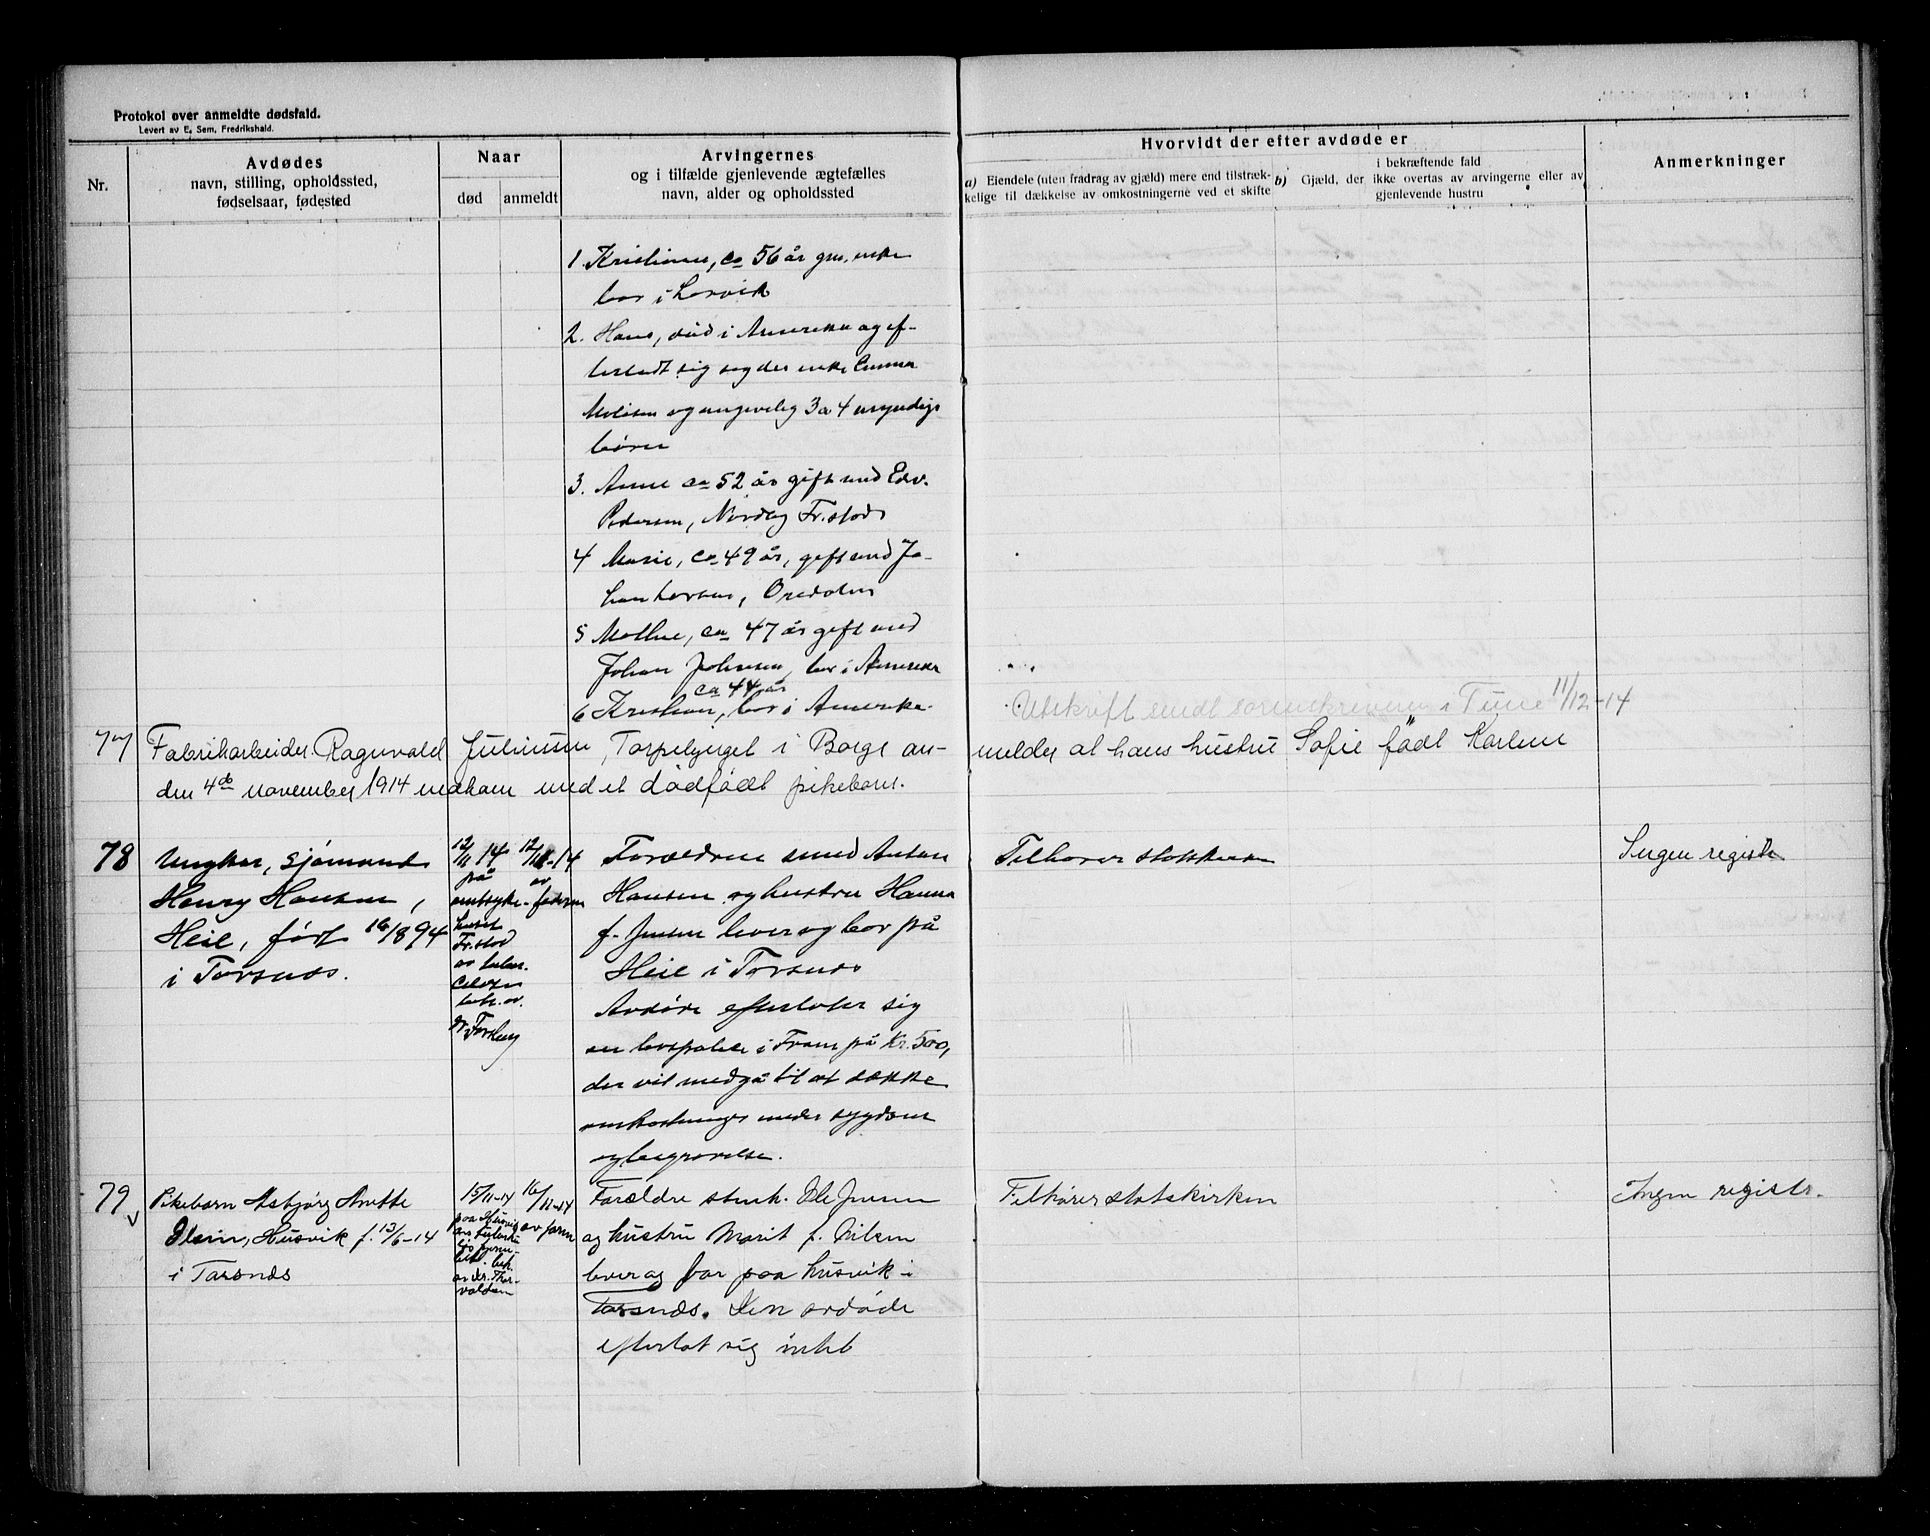 Protokol over anmeldte dødsfald.
Levert av E. Sem, Fredrikshald.
Nr.
Avdødes
navn, stilling, opholdssted,
fødselsaar, fødested
Naar
død
anmeldt
Arvingernes
og i tilfælde gjenlevende ægtefælles
navn, alder og opholdssted
Hvorvidt der efter avdøde er
a) Eiendele (uten fradrag av gjæld) mere end tilstræk-
kelige til dækkelse av omkostningerne ved et skifte
b) Gjæld, der
i bekræftende fald
ikke overtas av arvingerne eller av
gjenlevende hustru
Anmerkninger
1. Kristiane, ca 56 år gm. enke
bor i Larvik
2. Hans, død i Amerika og ef-
terladt sig enke Emma
og 3 a 4 umyndige
børn
3. Anne ca 52 år gift med Edv.
Pedersen, Fr.stad
4 Marie, ca 49 år, gift med Jo-
han Larsen,
5 Mathe, ca 47 år gift med
Johan Johnsen, bor i Amerika
ca 44 år
6 Kristian, bor i Amerika.
Utskrift sendt sorenskriveren i Tune 11/12-14
77 Fabrikarbeider Ragnvald Julinssen, Torpebjerget i Borge an-
melder at hans hustru Sofie født Karlsen
den 4de november 1914 nedkom med et dødfødt pikebarn.
78
Ungkar, sjømand
Henry Hansen,
Heie, født 16/8 94
i Torsnæs.
12/11 14
på
amtsyke-
huset
Fr.stad
av tuber-
culose
beh. av
dr. Forsberg
12/11-14
av
faderen
Forældrene smed Anton
Hansen og hustru Hanna
f. Jensen lever og bor på
Heie i Torsnæs
Avdøde efterlater sig
en livspolice i Fram på Kr. 500,
der vil medgå til at dække
omkostninger under sygdom
og begravelse.
Tilhører statskirken
Ingen registr
79
Pikebarn Asbjørg Anette
Olsen, Husvik f. 13/6-14
i Torsnæs
15/11-14
paa Husvik
av tuberku-
beh.
av dr. Thor-
valdsen
16/11-14
av faren
Forældre stenh. Ole Jensen
og hustru Marit f. Nilsen
lever og bor paa Husvik i
Torsnæs. Den avdøde
efterlot sig intet
Tilhører statskirken
Ingen registr.